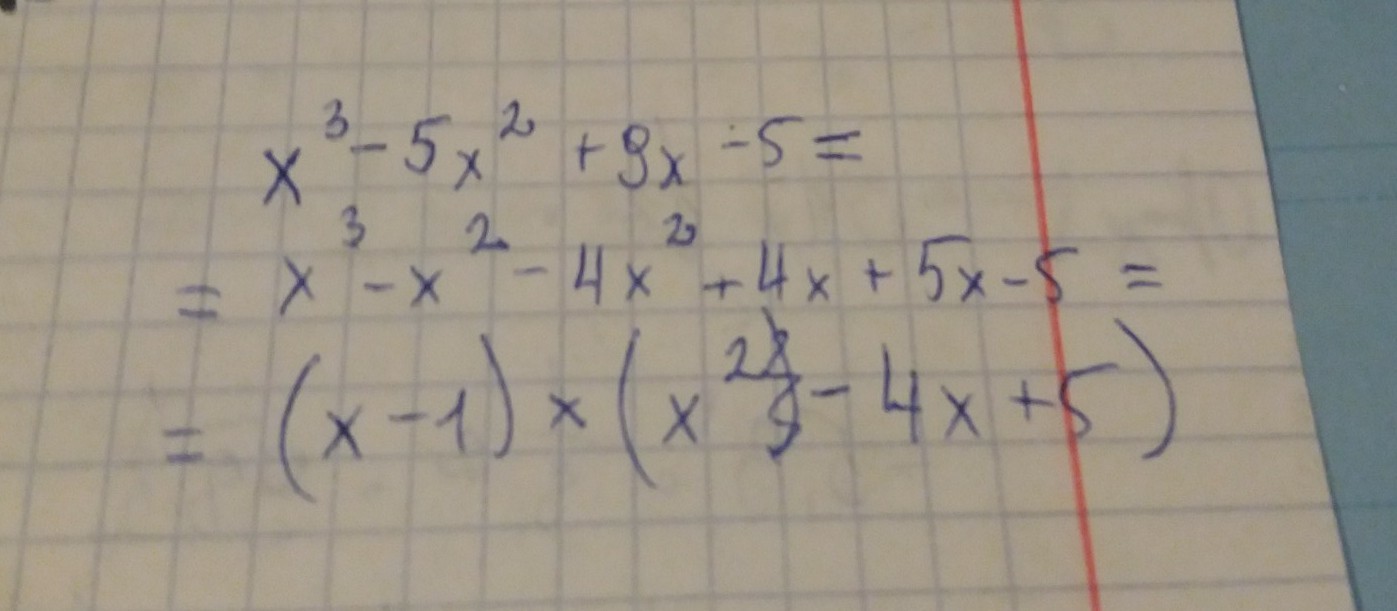 x³ - 5x² + 9x - 5 =
= x³ - x² - 4x² + 4x + 5x - 5 =
= (x - 1) × (x² - 4x + 5)